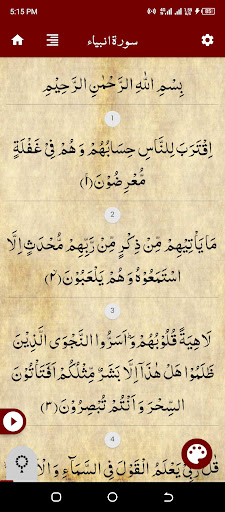 5:15 PM
سورۃ انبیاء
بِسْمِ اللّٰهِ الرَّحْمٰنِ الرَّحِيْمِ
1
اِقْتَرَبَ لِلنَّاسِ حِسَابُهُمْ وَ هُمْ فِیْ غَفْلَةٍ
مُّعْرِضُوْنَ(۱)
2
مَا یَاْتِیْهِمْ مِّنْ ذِكْرٍ مِّنْ رَّبِّهِمْ مُّحْدَثٍ اِلَّا
اسْتَمَعُوْهُ وَ هُمْ یَلْعَبُوْنَ(۲)
3
لَاهِیَةً قُلُوْبُهُمْؕ وَ اَسَرُّوا النَّجْوَى الَّذِیْنَ
ظَلَمُوْا هَلْ هٰذَاۤ اِلَّا بَشَرٌ مِّثْلُكُمْۚ اَفَتَاْتُوْنَ
السِّحْرَ وَ اَنْتُمْ تُبْصِرُوْنَ(۳)
4
قٰلَ رَبِّیْ یَعْلَمُ الْقَوْلَ فِی السَّمَآءِ وَ